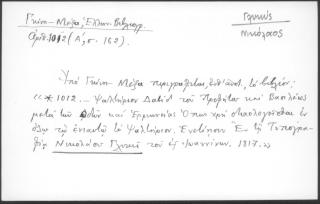 Γκίνη - Μέξα, Ἑλλην. Βιβλιογρ.
Ἀριθ. 1012 (Α', σ. 162).
Γλυκύς
Νικόλαος
Ὑπὸ Γκίνη - Μέξα περιγράφεται, τὸ βιβλίον:
«*1012 ... Ψαλτήριον Δαβὶδ τοῦ Προφήτου καὶ Βασιλέως
μετὰ τῶν ᾠδῶν καὶ Ἑρμηνείας Ὅπως χρὴ στιχολογεῖσθαι ἐν
ὅλῳ τῷ ἐνιαυτῷ τὸ Ψαλτήριον. Ἐνετίησιν Ἐν τῇ Τυπογρα-
φίᾳ Νικολάου Γλυκεῖ τοῦ ἐξ Ἰωαννίνων. 1817.»